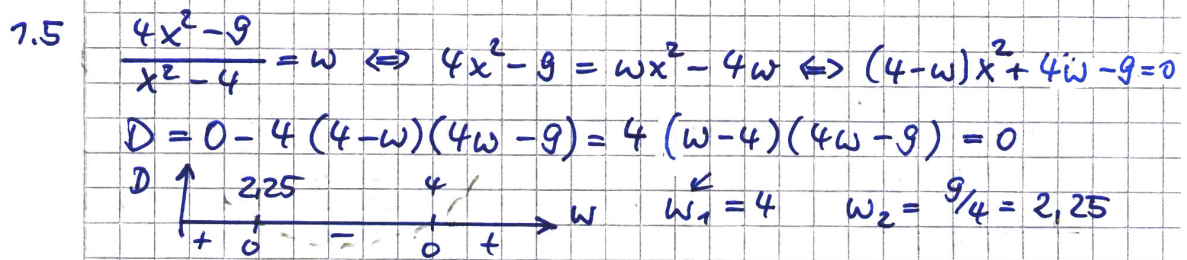 1.5 (4x² - 9)/(x² - 4) = w ⇔ 4x² - 9 = wx² - 4w ⇔ (4-w)x² + 4w - 9 = 0
D = 0 - 4 (4-w)(4w-9) = 4 (w-4)(4w-9) = 0
D 2,25 4 w w₁ = 4 w₂ = 9/4 = 2,25
+ 0 - 0 +